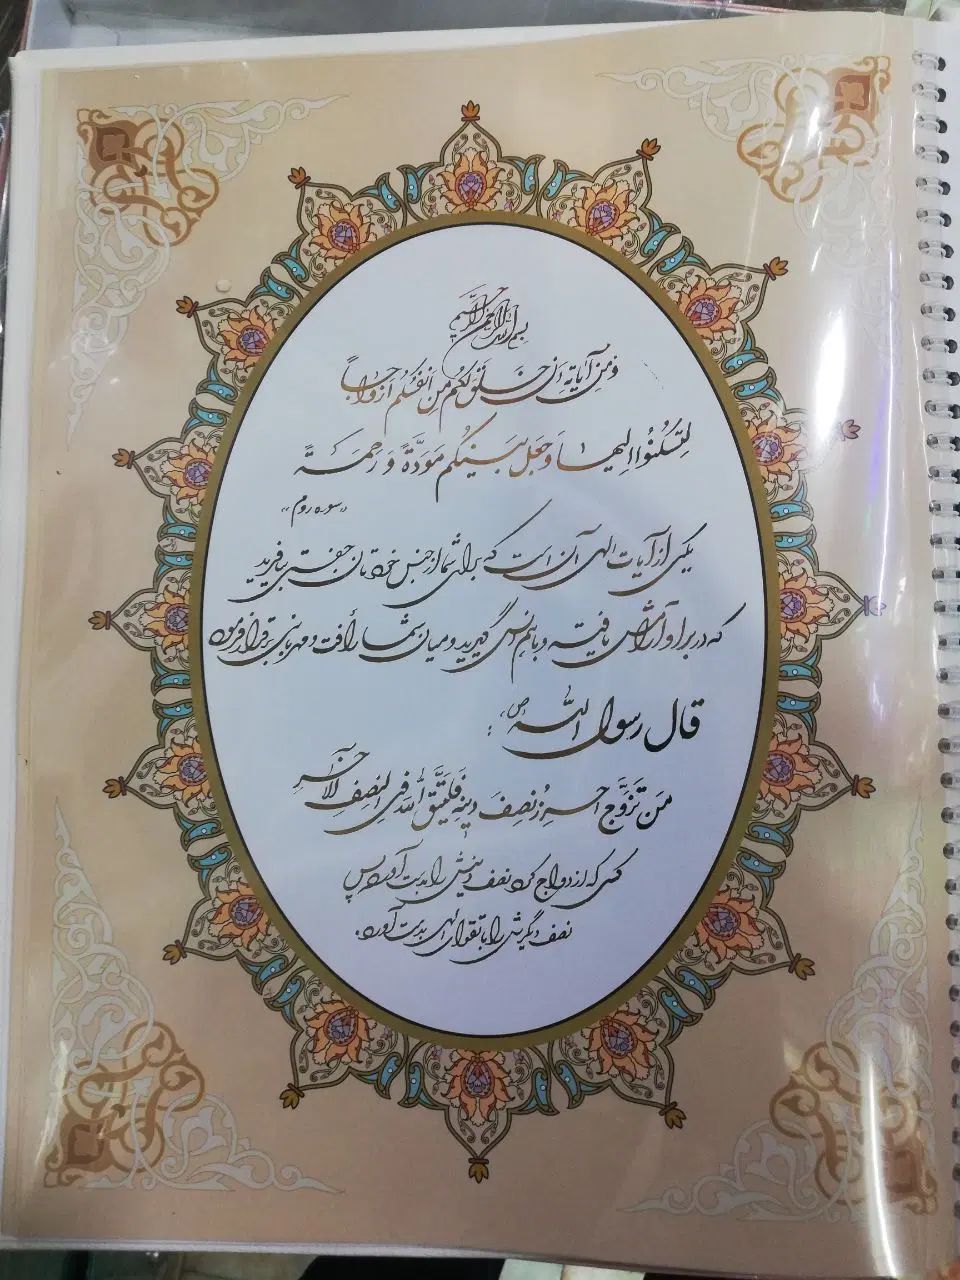 بسم الله الرحمن الرحیم
وَمِنْ آیاتِهِ اَنْ خَلَقَ لَکُمْ مِنْ اَنْفُسِکُمْ اَزْواجاً
لِتَسْکُنُوا اِلَیها وَ جَعَلَ بَیْنَکُمْ مَوَدَّةً وَ رَحْمَةً
«سوره روم»
یکی از آیات الهی آن است که برای شما از جنس خودتان جفتی بیافرید
که در بر او آرامش یافته و با هم انس گیرید و میان شما رأفت و مهربانی برقرار فرمود
قال رسول الله (ص) :
مَن تَزَوَّج احرز نِصفَ دینِهِ فَلیَتَّقِ اللهَ فی النِصفِ الآخَرِ
کسی که ازدواج کرد نصف دینش را بدست آورد پس
نصف دیگرش را با تقوای الهی بدست آورد.